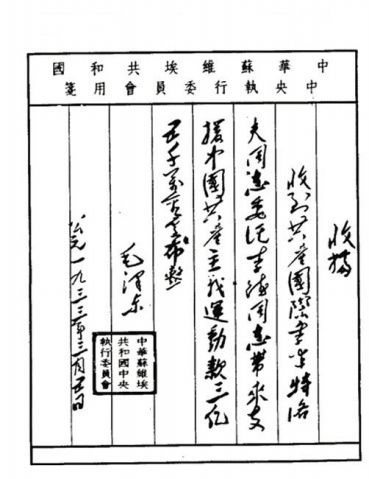 中華蘇維埃共和國
中央執行委員會用箋
收據
收到共產國際書記特洛
夫同志委託李德同志帶來支
援中國共產主義運動款三億
五千萬盧布整
毛澤東
公元一九三三年三月五日
中華蘇維埃
共和國中央
執行委員會